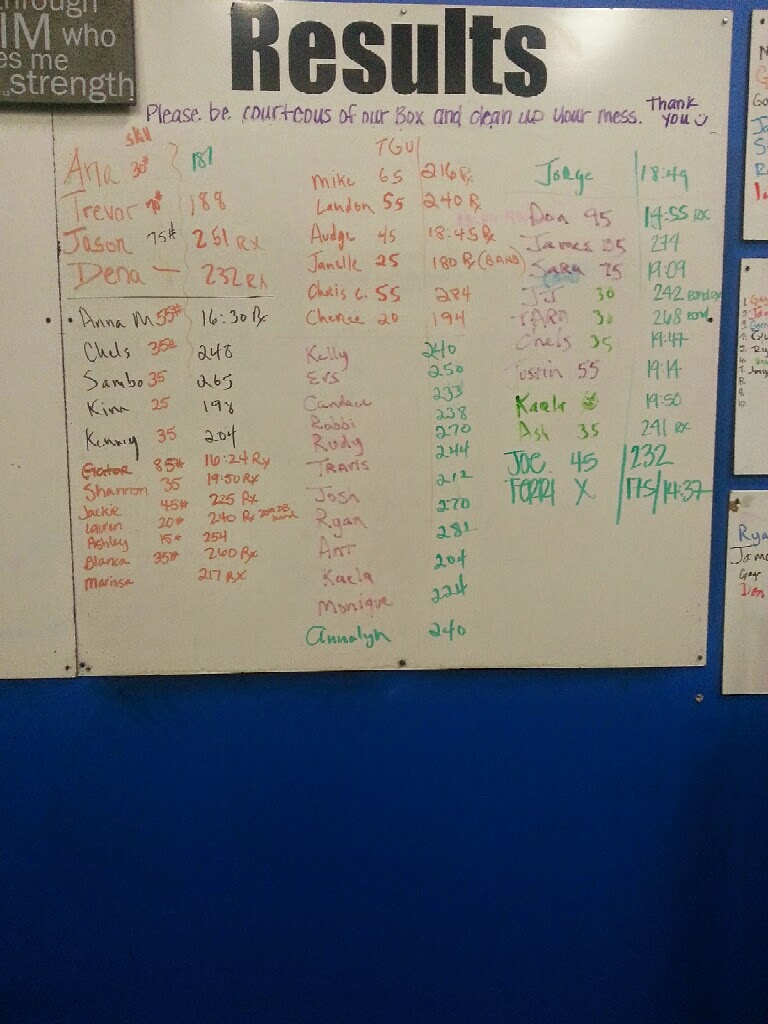 through
IM who
es me
strength
Results
Please be courteous of our Box and clean up your mess. Thank you
Skill
Ana 30# 181
Trevor 188
Jason 75# 251 RX
Dena — 232 RX
Anna M 55# 16:30 Rx
Chels 35# 248
Sambo 35 265
Kim 25 198
Kenny 35 204
Gator 85# 16:24 Rx
Shannon 35 19:50 Rx
Jackie 45# 225 Rx
Lauren 20# 240 Rx
Ashley 15# 254
Blanca 35# 260 Rx
Marissa 217 RX
TGU
Mike 65 216 Rx
Landon 55 240 Rx
Audge 45 18:45 Rx
Janelle 25 180 Rx (BAND)
Chris C. 55 284
Chenee 20 194
Kelly 240
Evs 250
Candace 233
Robbi 238
Rudy 270
Travis 244
Josh 212
Ryan 270
Ant 281
Kaela 204
Monique 224
Annalyn 240
Jorge 18:49
Don 95 14:55 RX
James 105 274
Sara 75 19:09
JJ 30 242
TARA 30 268 band
Chels 35 19:47
Justin 55 19:14
Kaele 19:50
Ash 35 291 RX
JOE 45 232
TERRI X 175/14:37
Rya
Jame
Gage
Don